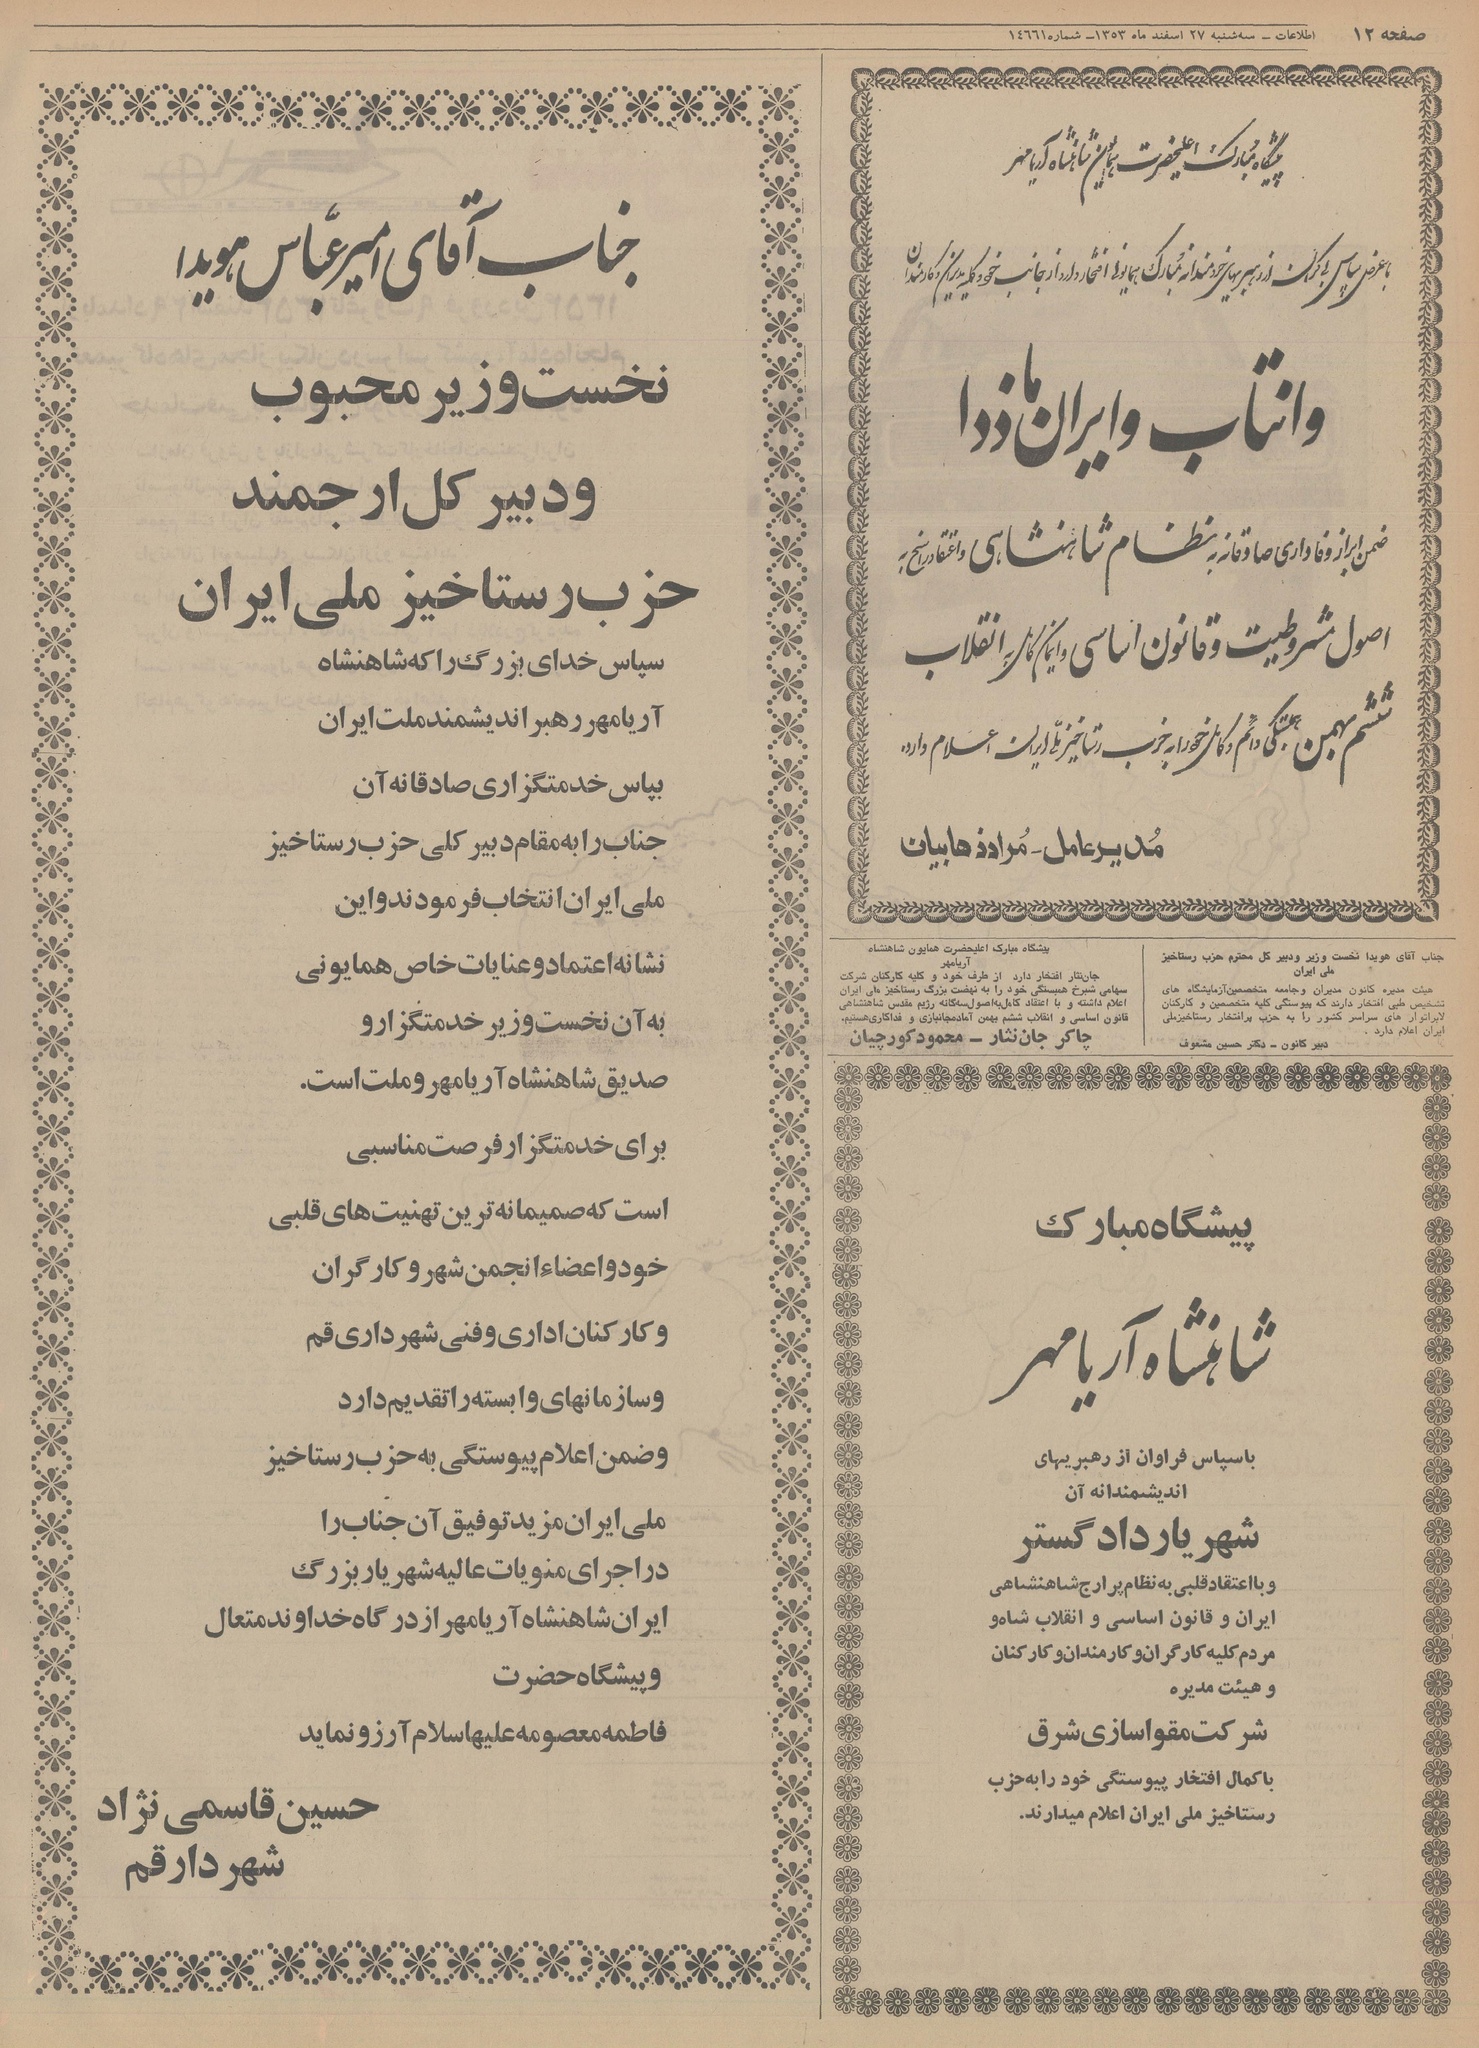 صفحه ۱۲
اطلاعات - سه‌شنبه ۲۷ اسفند ماه ۱۳۵۳ - شماره ۱۴۶۶۱
پیشگاه مبارک اعلیحضرت همایون شاهنشاه آریامهر
با عرض سپاس بی‌کران از رهبریهای خردمندانه مبارک همایونی افتخار دارد از جانب خود و کلیه مدیران و کارمندان
وانتاب و ایران ماذدا
ضمن ابراز وفاداری صادقانه به نظام شاهنشاهی و اعتقاد راسخ به
اصول مشروطیت و قانون اساسی و ایمان کامل به انقلاب
ششم بهمن همبستگی دائم و کامل خود را به حزب رستاخیز ملی ایران اعلام دارد.
مدیر عامل - مراد ذهابیان
جناب آقای هویدا نخست وزیر ودبیر کل محترم حزب رستاخیز
ملی ایران
هیئت مدیره کانون مدیران وجامعه متخصصین آزمایشگاه های
تشخیص طبی افتخار دارند که پیوستگی کلیه متخصصین و کارکنان
لابراتوار های سراسر کشور را به حزب پرافتخار رستاخیز ملی
ایران اعلام دارد .
دبیر کانون - دکتر حسین مشعوف
پیشگاه مبارک اعلیحضرت همایون شاهنشاه
آریامهر
جان‌نثار افتخار دارد از طرف خود و کلیه کارکنان شرکت
سهامی شیرخ همبستگی خود را به نهضت بزرگ رستاخیز ملی ایران
اعلام داشته و با اعتقاد کامل به اصول سه‌گانه رژیم مقدس شاهنشاهی
قانون اساسی و انقلاب ششم بهمن آماده جانبازی و فداکاری هستیم.
چاکر جان‌نثار - محمود کورچیان
پیشگاه مبارک
شاهنشاه آریامهر
باسپاس فراوان از رهبریهای
اندیشمندانه آن
شهریار دادگستر
و با اعتقاد قلبی به نظام پر ارج شاهنشاهی
ایران و قانون اساسی و انقلاب شاه و
مردم کلیه کارگران و کارمندان و کارکنان
و هیئت مدیره
شرکت مقواسازی شرق
باکمال افتخار پیوستگی خود را به حزب
رستاخیز ملی ایران اعلام میدارند.
جناب آقای امیرعباس هویدا
نخست وزیر محبوب
ودبیر کل ارجمند
حزب رستاخیز ملی ایران
سپاس خدای بزرگ را که شاهنشاه
آریامهر رهبر اندیشمند ملت ایران
بپاس خدمتگزاری صادقانه آن
جناب را به مقام دبیر کلی حزب رستاخیز
ملی ایران انتخاب فرمودند و این
نشانه اعتماد و عنایات خاص همایونی
به آن نخست وزیر خدمتگزار و
صدیق شاهنشاه آریامهر و ملت است.
برای خدمتگزار فرصت مناسبی
است که صمیمانه ترین تهنیت های قلبی
خود و اعضاء انجمن شهر و کارگران
و کارکنان اداری و فنی شهرداری قم
و سازمانهای وابسته را تقدیم دارد
و ضمن اعلام پیوستگی به حزب رستاخیز
ملی ایران مزید توفیق آن جناب را
در اجرای منویات عالیه شهریار بزرگ
ایران شاهنشاه آریامهر از درگاه خداوند متعال
و پیشگاه حضرت
فاطمه معصومه علیها سلام آرزو نماید
حسین قاسمی نژاد
شهردار قم